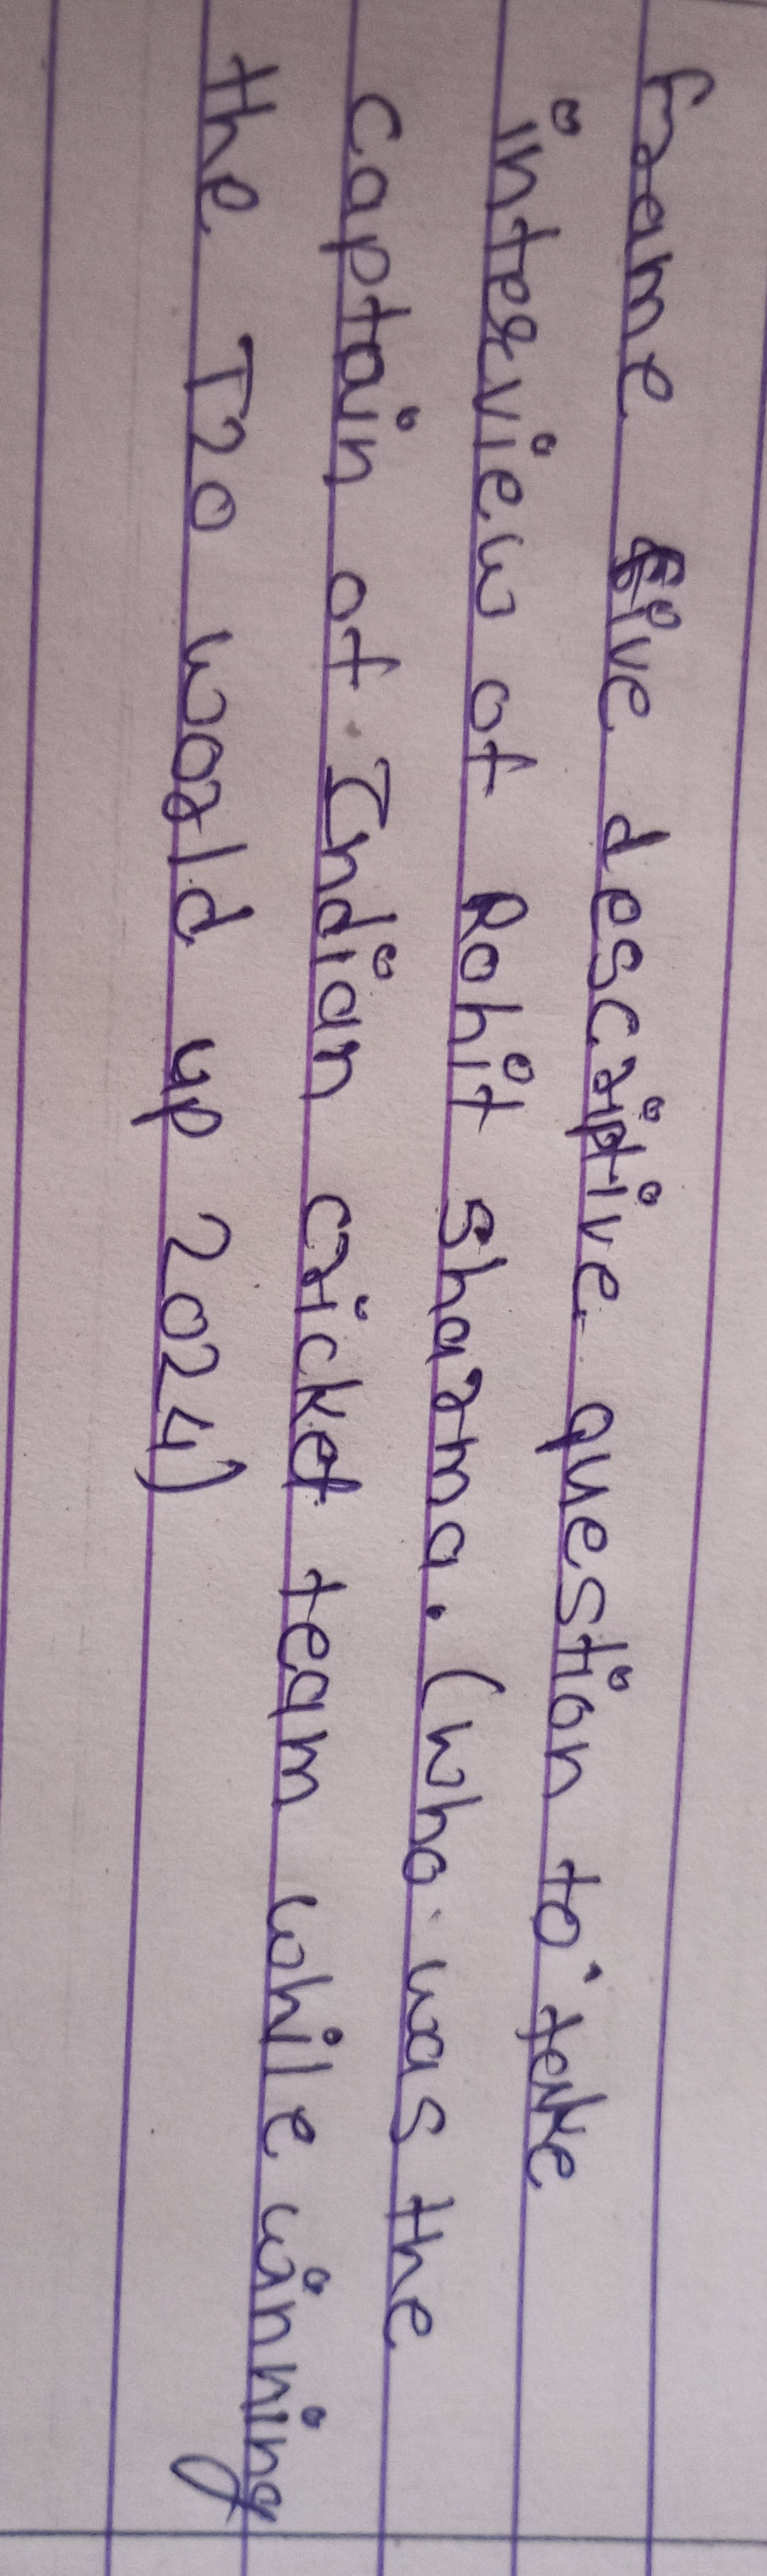 frame five descriptive question to take
interview of Rohit Sharma. (who was the
captain of Indian cricket team while winning
the T20 world up 2024)